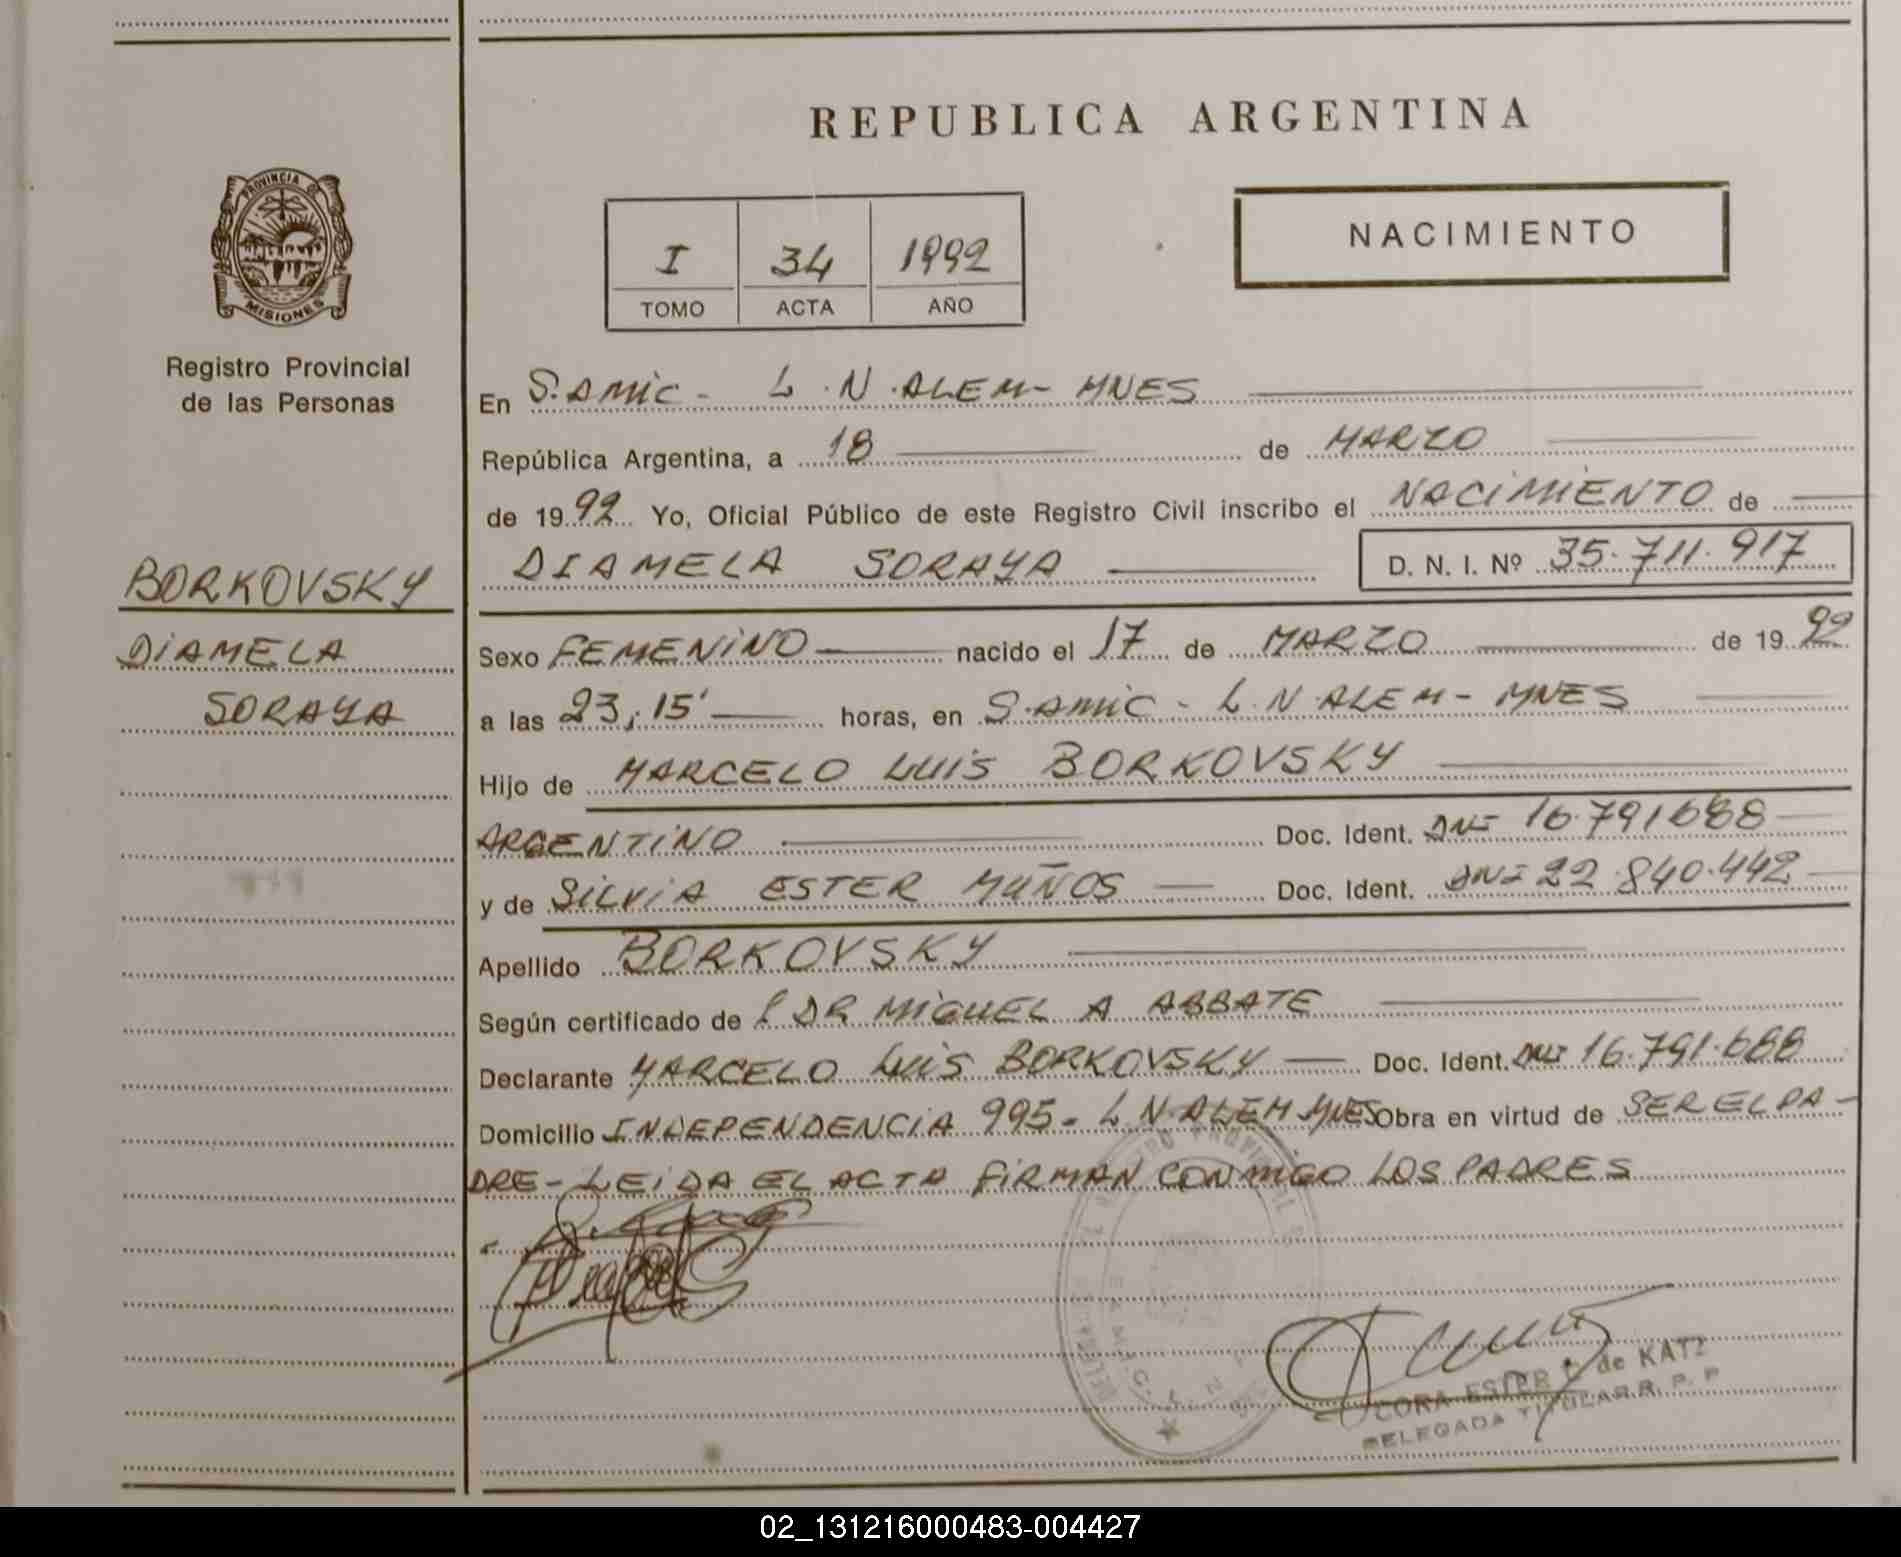 REPUBLICA ARGENTINA
PROVINCIA DE
MISIONES
Registro Provincial
de las Personas
I 34 1992
TOMO ACTA AÑO
NACIMIENTO
En S.AMIC - L.N.ALEM - MNES
República Argentina, a 18 de MARZO
de 1992 Yo, Oficial Público de este Registro Civil inscribo el NACIMIENTO de
DIAMELA SORAYA D. N. I. Nº 35.711.917
BORKOVSKY
DIAMELA
SORAYA
Sexo FEMENINO nacido el 17 de MARZO de 1992
a las 23,15' horas, en S.AMIC - L.N.ALEM - MNES
Hijo de MARCELO LUIS BORKOVSKY
ARGENTINO Doc. Ident. DNI 16.791688
y de SILVIA ESTER MUÑOS Doc. Ident. DNI 22.840.442
Apellido BORKOVSKY
Según certificado de DR MIGUEL A ABBATE
Declarante MARCELO LUIS BORKOVSKY Doc. Ident. DNI 16.791.688
Domicilio INDEPENDENCIA 995 - L.N.ALEM MNES Obra en virtud de SER EL PA-
DRE - LEIDA EL ACTA FIRMAN CONMIGO LOS PADRES
CORA ESTER de KATZ
DELEGADA TITULAR R. P. P
02_131216000483-004427